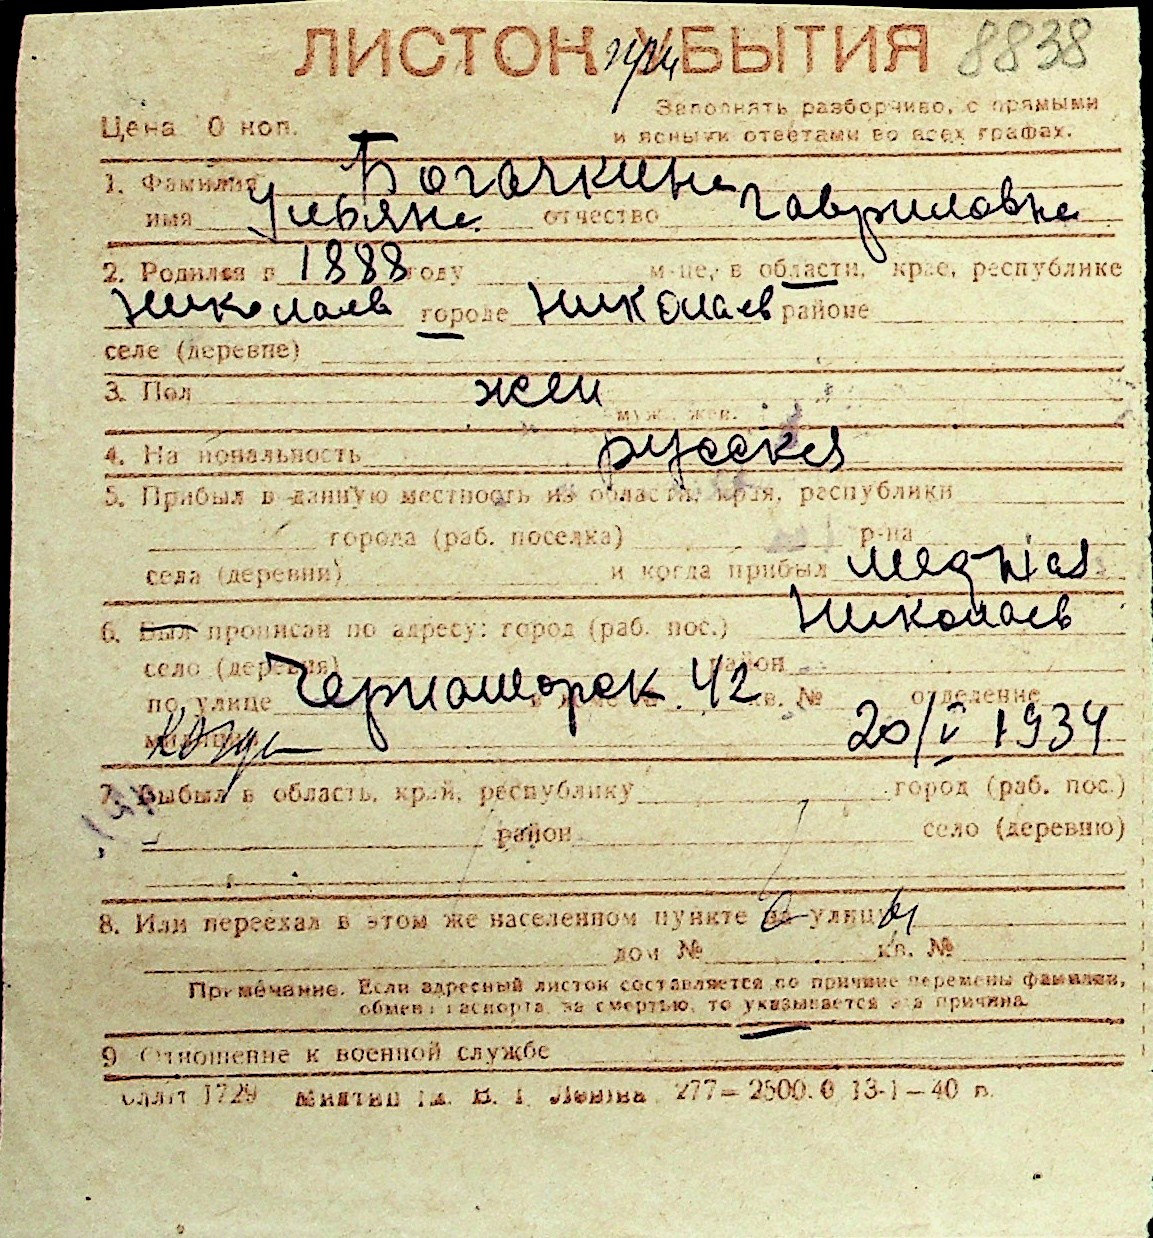 ЛИСТОК УБЫТИЯ 8838
при
Цена 0 коп.
Заполнять разборчиво, с прямыми
и ясными ответами во всех графах.
1. Фамилия Богачкина
имя Ульяна отчество Гавриловна
2. Родился в 1888 году м-це, в области, крае, республике
Николаев городе Николаев районе
селе (деревне)
3. Пол жен
муж., жен.
4. Национальность русская
5. Прибыл в данную местность из области, края, республики
города (раб. поселка) р-на
села (деревни) и когда прибыл местная
6. Был прописан по адресу: город (раб. пос.) Николаев
село (деревня) район
по улице Черноморск 42 кв. № отделение
милиции когда 20/V 1934
7. Выбыл в область, край, республику город (раб. пос.)
район село (деревню)
8. Или переехал в этом же населенном пункте на улицу
дом № кв. №
Примечание. Если адресный листок составляется по причине перемены фамилии,
обмена паспорта, за смертью, то указывается эта причина.
9 Отношение к военной службе
1729 им. В. І. Леніна 277–2500.0 13-1–40 в.